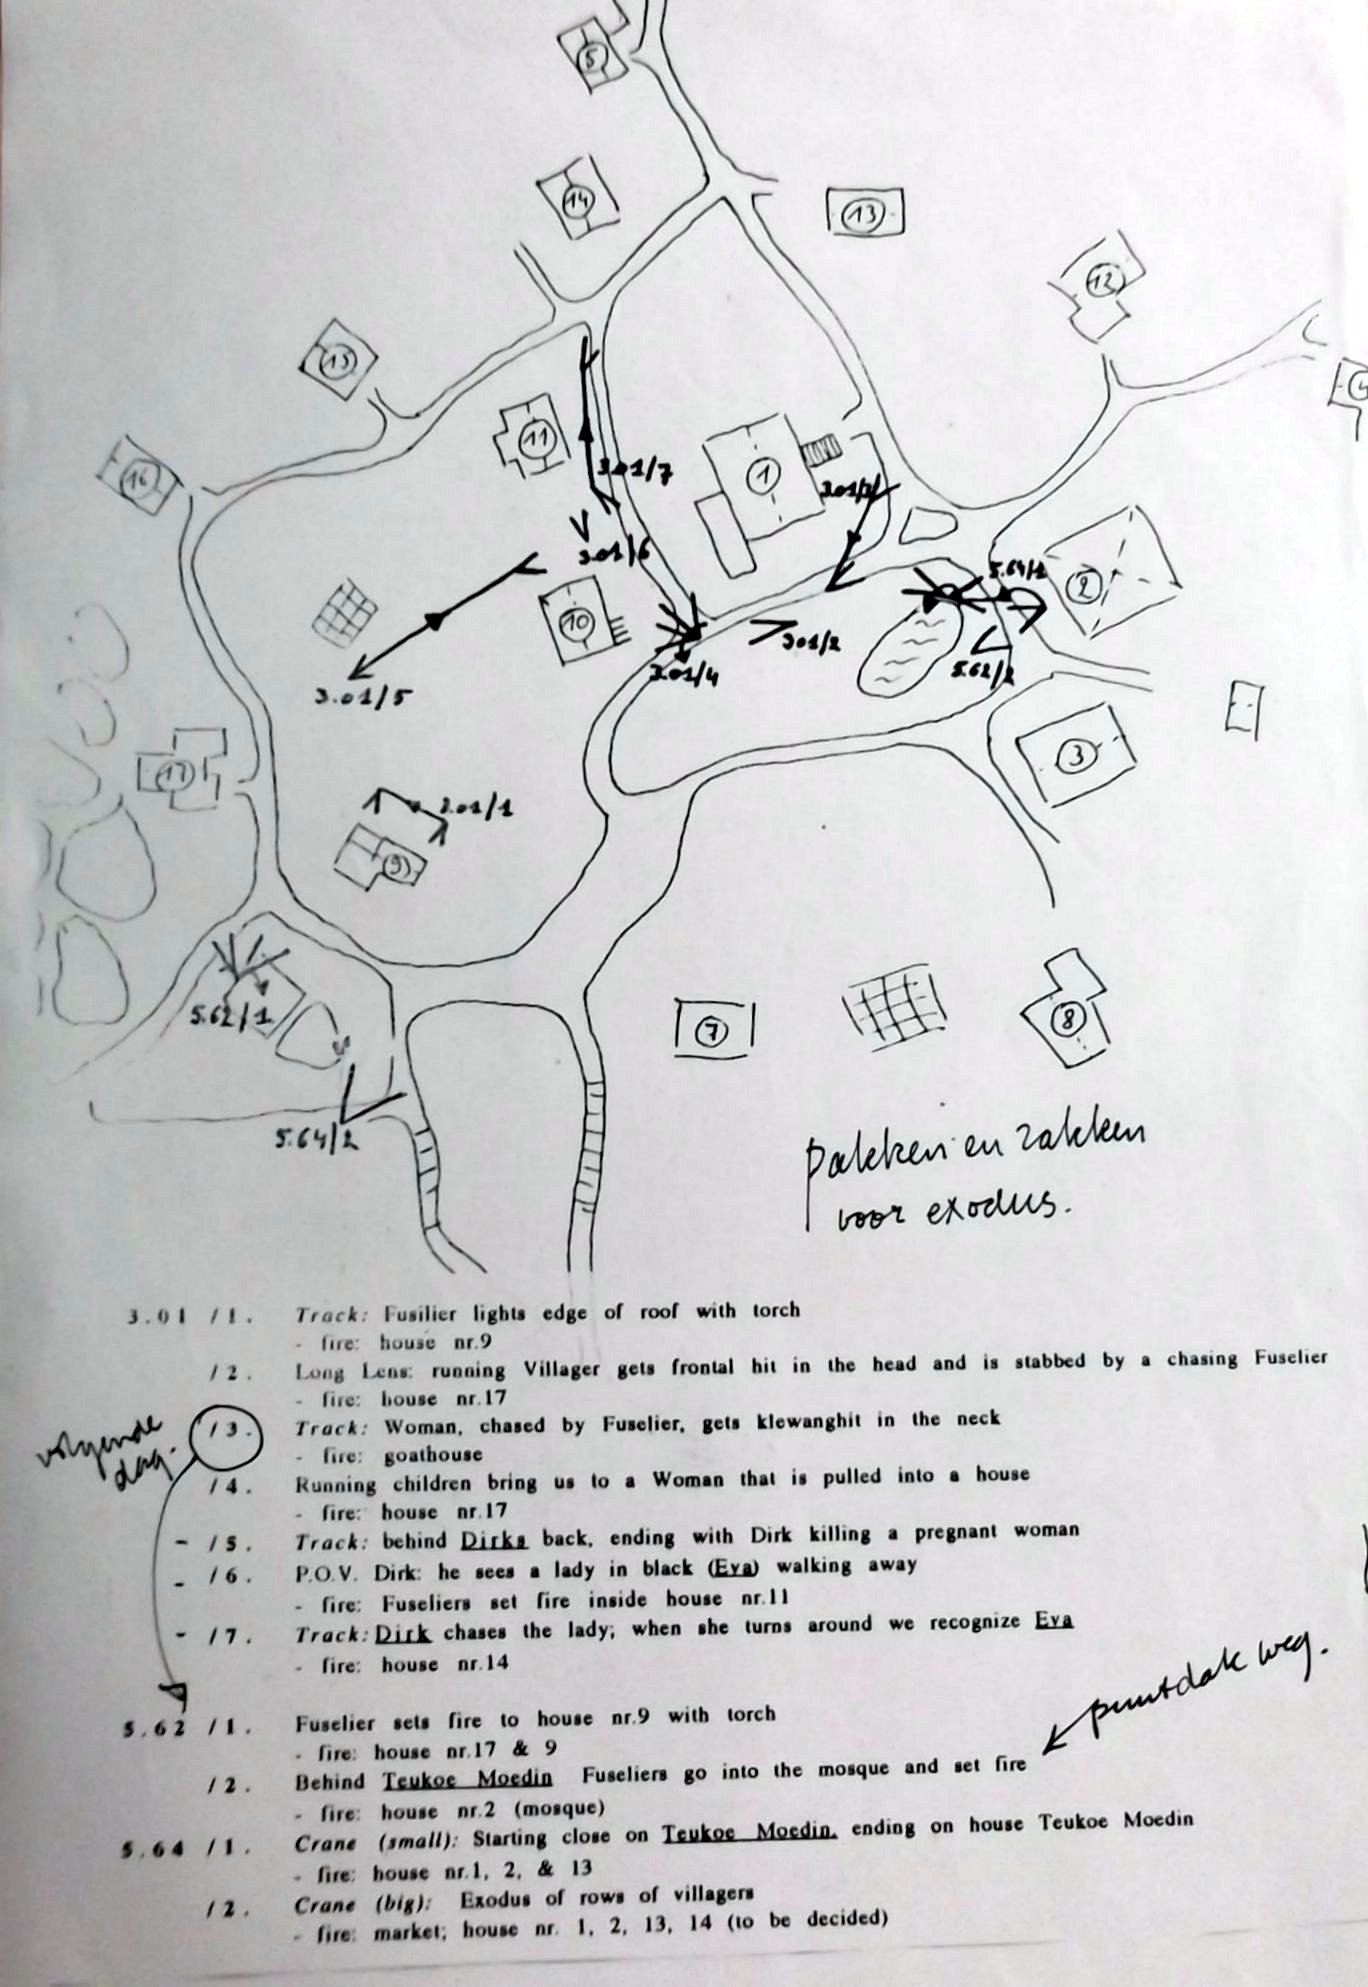 5
14
13
12
15
11
16
1
3.01/7
3.01/3
3.01/6
5.64/1
2
10
3.01/2
3.01/4
5.62/2
3.01/5
3
17
3.01/1
9
5.62/1
7
8
5.64/2
pakken en zakken
voor exodus.
3.01 /1. Track: Fusilier lights edge of roof with torch
- fire: house nr.9
/2. Long Lens: running Villager gets frontal hit in the head and is stabbed by a chasing Fuselier
- fire: house nr.17
volgende
dag.
/3. Track: Woman, chased by Fuselier, gets klewanghit in the neck
- fire: goathouse
/4. Running children bring us to a Woman that is pulled into a house
- fire: house nr.17
- /5. Track: behind Dirks back, ending with Dirk killing a pregnant woman
- /6. P.O.V. Dirk: he sees a lady in black (Eva) walking away
- fire: Fuseliers set fire inside house nr.11
- /7. Track: Dirk chases the lady; when she turns around we recognize Eva
- fire: house nr.14
puntdak weg.
5.62 /1. Fuselier sets fire to house nr.9 with torch
- fire: house nr.17 & 9
/2. Behind Teukoe Moedin Fuseliers go into the mosque and set fire
- fire: house nr.2 (mosque)
5.64 /1. Crane (small): Starting close on Teukoe Moedin, ending on house Teukoe Moedin
- fire: house nr.1, 2, & 13
/2. Crane (big): Exodus of rows of villagers
- fire: market; house nr. 1, 2, 13, 14 (to be decided)